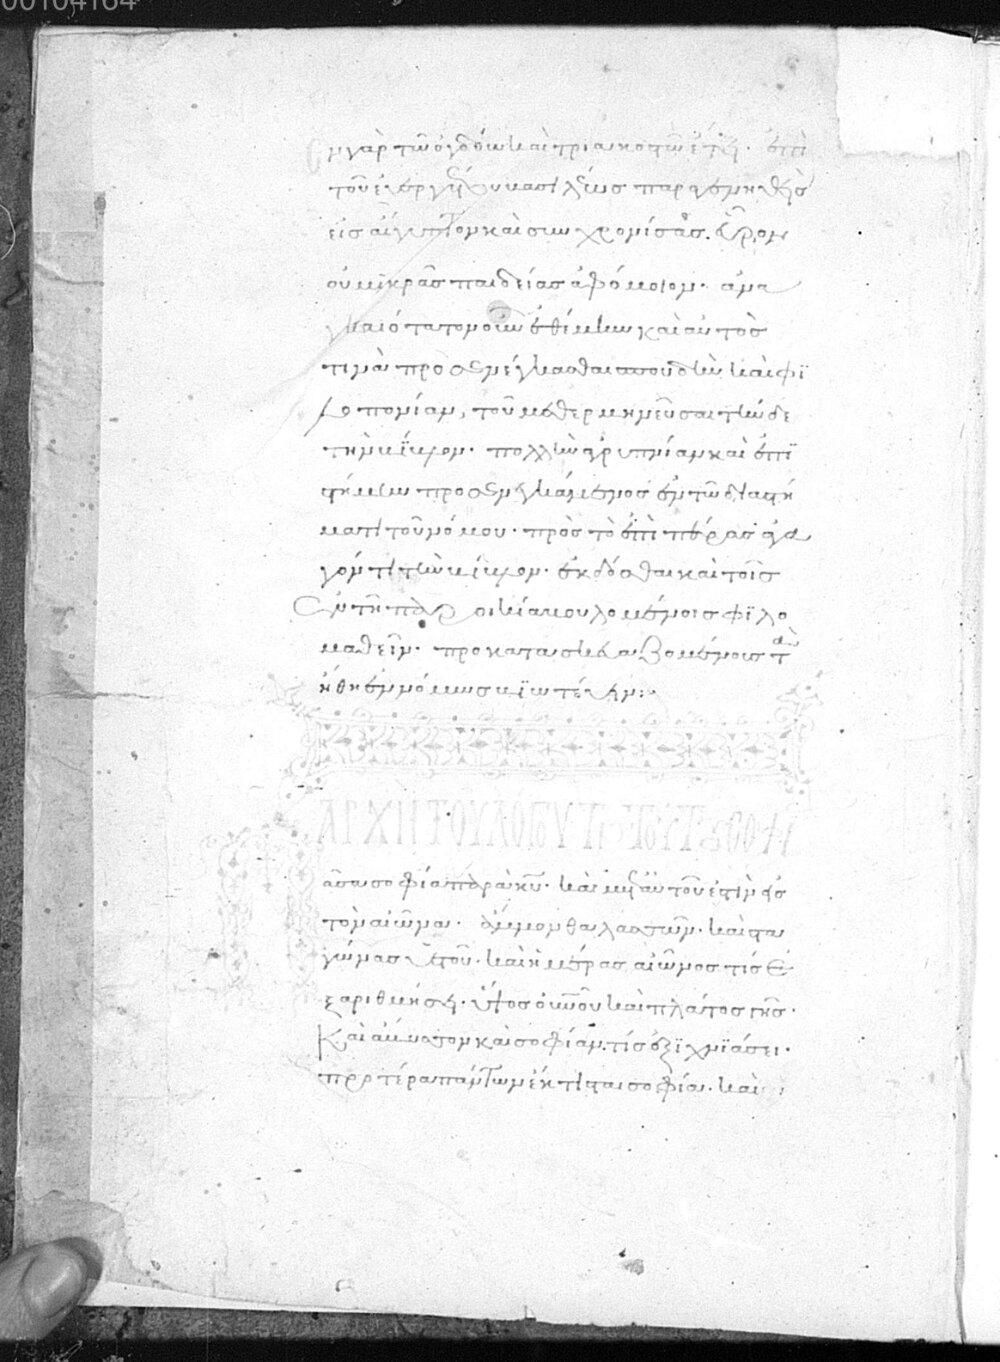 00104164
Εν γὰρ τῶ ὀγδόω καὶ τριακοστῶ ἔτει· ἐπὶ
τοῦ εὐεργέτου βασιλέως παραγενηθεὶς
εἰς αἴγυπτον καὶ συγχρονίσας. εὗρον
οὐ μικρᾶς παιδείας ἀφόμοιον· ἀνα
γκαιότατον οὖν ἐθέμην καὶ αὐτὸς
τινὰ προσενέγκασθαι σπουδὴν καὶ φι
λοπονίαν, τοῦ μεθερμηνεῦσαι τήνδε
τὴν βίβλον· πολλὴν ἀγρυπνίαν καὶ ἐπι
στήμην προσενεγκάμενος ἐν τῶ διαστή
ματι τοῦ χρόνου· πρὸς τὸ ἐπὶ πέρας ἀγα
γόντι τὴν βίβλον· ἐκδόσθαι καὶ τοῖς
ἐν τῆ παροικία βουλομένοις φιλο
μαθεῖν· προκατασκευαζομένοις τὰ
ἤθη ἐννόμως βιωτεύειν:
ασα σοφία παρὰ κυ· καὶ μετ αὐτοῦ ἐστὶν εἰς
τὸν αἰῶνα· ἄμμον θαλασσῶν· καὶ στα
γόνας ὑετοῦ· καὶ ἡμέρας αἰῶνος τίς ἐ
ξαριθμήσει· ὕψος οὐνοῦ καὶ πλάτος γῆς·
Καὶ ἄβυσσον καὶ σοφίαν τίς ἐξιχνιάσει·
προτέρα πάντων ἔκτισται σοφία· καὶ